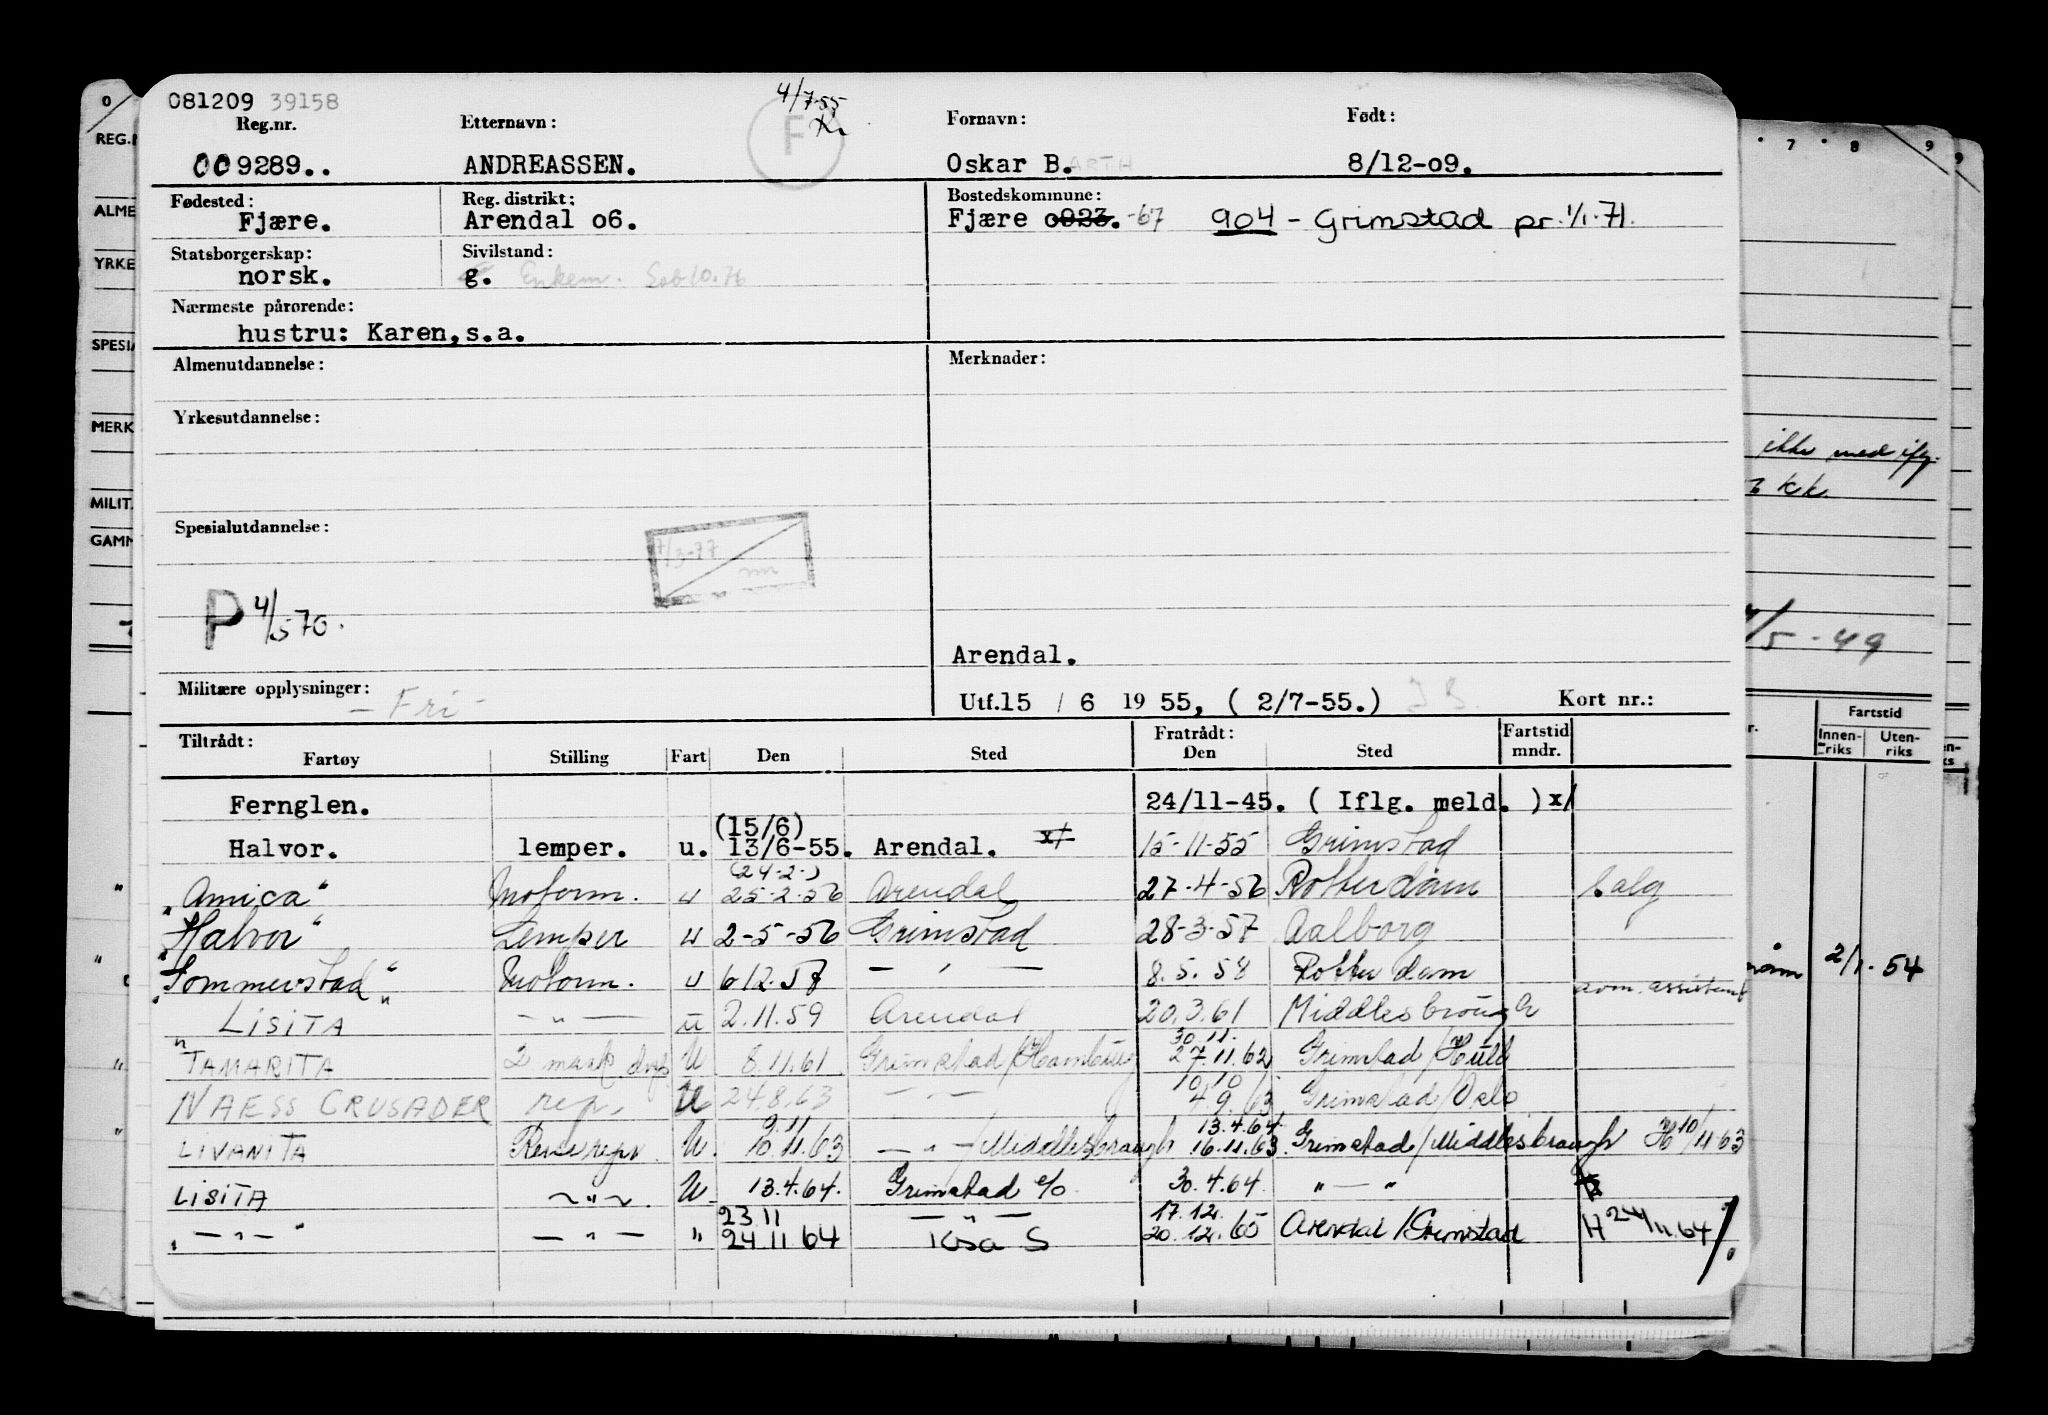 081209 39158
4/7-55
F
Reg.nr. Etternavn: Fornavn: Født:
009289.. ANDREASSEN. Oskar B.ARTH 8/12-09.
Fødested: Reg. distrikt: Bostedskommune:
Fjære. Arendal o6. Fjære o923. -67 904 - Grimstad pr. 1/1-71.
Statsborgerskap: Sivilstand:
norsk. g. Enkem.
Nærmeste pårørende:
hustru: Karen,s.a.
Almenutdannelse: Merknader:
Yrkesutdannelse:
Spesialutdannelse:
7/3-77
P 4/5 70.
Arendal.
Militære opplysninger: - Fri - Utf.15 / 6 19 55, ( 2/7-55.) Kort nr.:
Tiltrådt: Fratrådt: Fartstid
Fartøy Stilling Fart Den Sted Den Sted mndr.
Fernglen. 24/11-45. ( Iflg. meld. )x/
(15/6)
Halvor. lemper. u. 13/6-55. Arendal. x/ 15-11-55 Grimstad
(24-2-)
"Amica" Motorm. u 25-2-56 Arendal 27-4-56 Rotterdam Salg
"Halvor" Lemper u 2-5-56 Grimstad 28-3-57 Aalborg
"Sommerstad" Motorm. u 6/2.58 — " — 8.5.58 Rotterdam
avm. assistent
LISITA — " — u 2.11.59 Arendal 20.3.61 Middlesbrough
30.11.
"TAMARITA 2 mask U 8.11.61 Grimstad/Hamburg 27.11.62 Grimstad/Hull
10/10
NAESS CRUSADER rep. U 24.8.63 — " — 4.9.63 Grimstad/Oslo
9.11 13.4.64
LIVANITA Reiserepr. U. 10.11.63 — " —/Middlesbraugh 16.11.63 Grimstad/Middlesbraugh H 10/11 63
LISITA ~ " ~ U. 13.4.64. Grimstad 30.4.64 " — "
23.11 — " — 17.12.
" — " — " — " — " 24.11 64 20.12.65 Arendal/Grimstad H 24/11.64
0
REG.N
ALME
YRKE
SPESIA
MERK
MILIT
GAMM
7 8 9 9
ikke med iflg.
kk
/5 - 49
Fartstid
Innen-riks Uten-riks
2/1-54